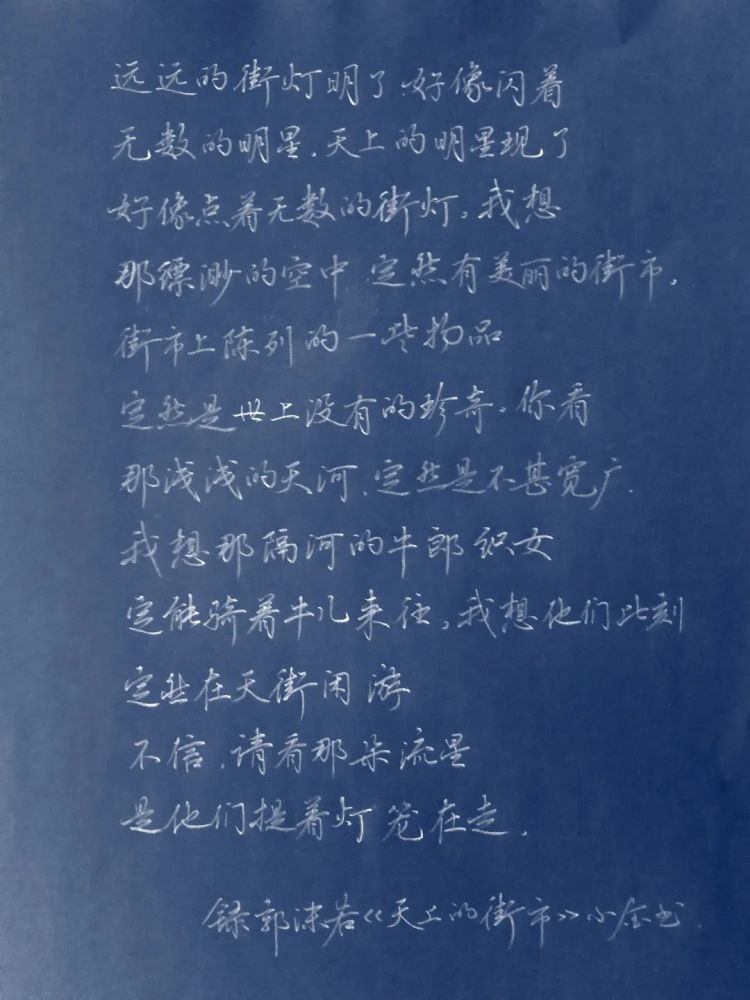 远远的街灯明了 好像闪着
无数的明星．天上的明星现了
好像点着无数的街灯。我想
那缥渺的空中 定然有美丽的街市。
街市上陈列的一些物品
定然是世上没有的珍奇。你看
那浅浅的天河、定然是不甚宽广．
我想那隔河的牛郎织女
定能骑着牛儿来往。我想他们此刻
定然在天街闲游
不信．请看那朵流星
是他们提着灯笼在走．
录郭沫若《天上的街市》小金书